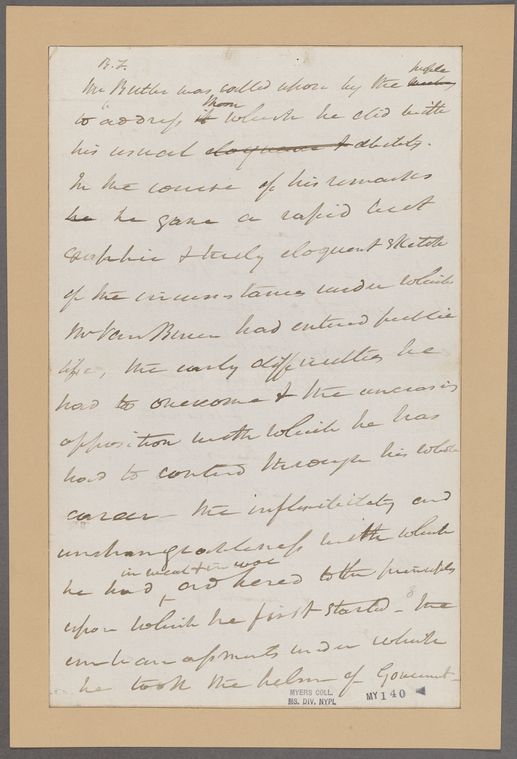 B.F.
Mr Butler was called upon by the people meeting
to address them it which he did with
his usual eloquence & ability.
In the course of his remarks
he he gave a rapid but
graphic & truly eloquent sketch
of the circumstances under which
Mr Van Buren had entered public
life, the early difficulties he
had to overcome & the unceasing
opposition with which he has
had to contend through his whole
career – the inflexibility and
unchangeableness with which
in weal & in woe
he had adhered to the principles
upon which he first started – the
embarrassments under which
he took the helm of Governmt –
MYERS COLL.
MS. DIV. NYPL
MY 140